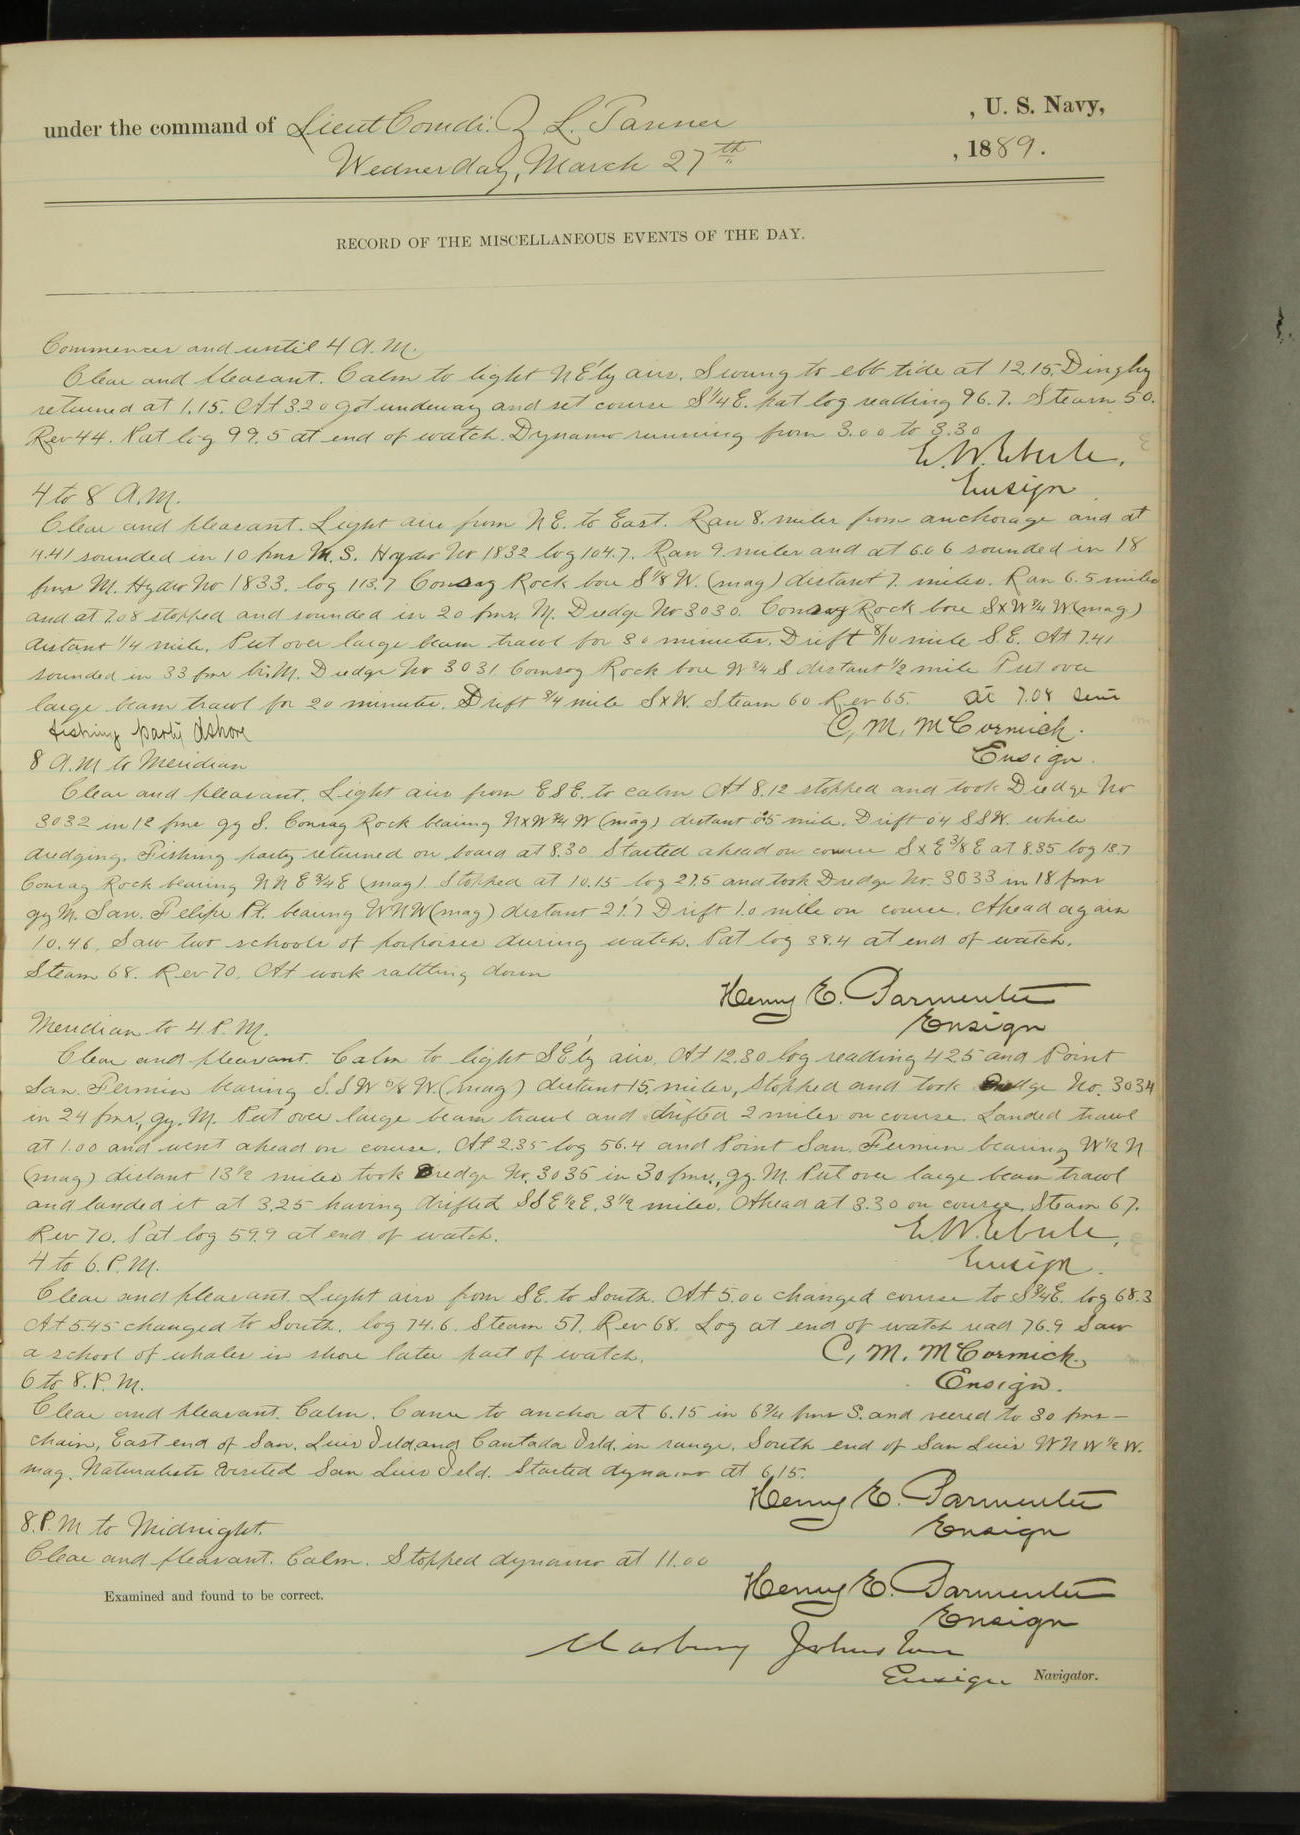 under the command of Lieut Comdr. Z L. Tanner , U. S. Navy,
Wednesday, March 27th , 1889.
RECORD OF THE MISCELLANEOUS EVENTS OF THE DAY.
Commences and until 4 A.M.
Clear and pleasant. Calm to light NE'ly airs. Swung to ebb tide at 12.15. Dinghy
returned at 1.15. At 3.20 got underway and set course S¼E. pat log reading 96.7. Steam 50.
Rev 44. Pat log 99.5 at end of watch. Dynamo running from 3.00 to 3.30
E. W. Eberle.
Ensign.
4 to 8 A.M.
Clear and pleasant. Light airs from NE. to East. Ran 8. miles from anchorage and at
4.41 sounded in 10 fms M. S. Hydro No 1832 log 104.7. Ran 9 miles and at 6.06 sounded in 18
fms M. Hydro No 1833. log 113.7 Consag Rock bore S⅛W. (mag) distant 7. miles. Ran 6.5 miles
and at 7.08 stopped and sounded in 20 fms. M. Dredge No 3030. Consag Rock bore SxW¾W (mag)
distant ¼ mile. Put over large beam trawl for 30 minutes. Drift 8/10 mile SE. At 7.41
sounded in 33 fms br. M. Dredge No 3031 Consag Rock bore W¾S distant ½ mile Put over
large beam trawl for 20 minutes. Drift ¾ mile SxW. Steam 60 Rev 65. at 7.08 sent
fishing party ashore C. M. McCormick.
Ensign.
8 A.M to Meridian
Clear and pleasant. Light airs from ESE. to calm At 8.12 stopped and took Dredge No
3032 in 12 fms gy S. Consag Rock bearing NxW¾W (mag) distant 0.5 mile. Drift 0.4 SSW. while
dredging. Fishing party returned on board at 8.30 Started ahead on course SxE⅜E at 8.35 log 13.7
Consag Rock bearing NNE¾E (mag). Stopped at 10.15 log 27.5 and took Dredge No. 3033 in 18 fms
gy M. San. Felipe Pt. bearing WNW (mag) distant 21.'7 Drift 1.0 mile on course. Ahead again
10.46. Saw two schools of porpoises during watch. Pat log 38.4 at end of watch.
Steam 68. Rev 70. At work rattling down
Henry E. Parmenter
Ensign
Meridian to 4 P.M.
Clear and pleasant. Calm to light SE'ly airs. At 12.30 log reading 42.5 and Point
San. Fermin bearing S.SW⅝W. (mag) distant 15. miles, stopped and took Dredge No. 3034
in 24 fms., gy. M. Put over large beam trawl and drifted 2 miles on course. Landed trawl
at 1.00 and went ahead on course. At 2.35 log 56.4 and Point San. Fermin bearing W½N
(mag) distant 13½ miles took Dredge No. 3035 in 30 fms., gy. M. Put over large beam trawl
and landed it at 3.25 having drifted SSE½E. 3½ miles. Ahead at 3.30 on course. Steam 67.
Rev 70. Pat log 59.9 at end of watch. E. W. Eberle,
Ensign.
4 to 6. P.M.
Clear and pleasant. Light airs from SE. to South. At 5.00 changed course to S¾E. log 68.3
At 5.45 changed to South. log 74.6. Steam 57. Rev 68. Log at end of watch read 76.9 Saw
a school of whales in shore later part of watch. C. M. McCormick.
Ensign.
6 to 8. P.M.
Clear and pleasant. Calm. Came to anchor at 6.15 in 6¾ fms S. and veered to 30 fms —
chain, East end of San. Luis Isld. and Cantada Isld. in range. South end of San Luis WNW½W.
mag. Naturalists visited San Luis Isld. Started dynamo at 6.15.
Henry E. Parmenter
Ensign
8. P.M to Midnight.
Clear and pleasant. Calm. Stopped dynamo at 11.00
Henry E. Parmenter
Ensign
Examined and found to be correct.
Marbury Johnston
Ensign Navigator.